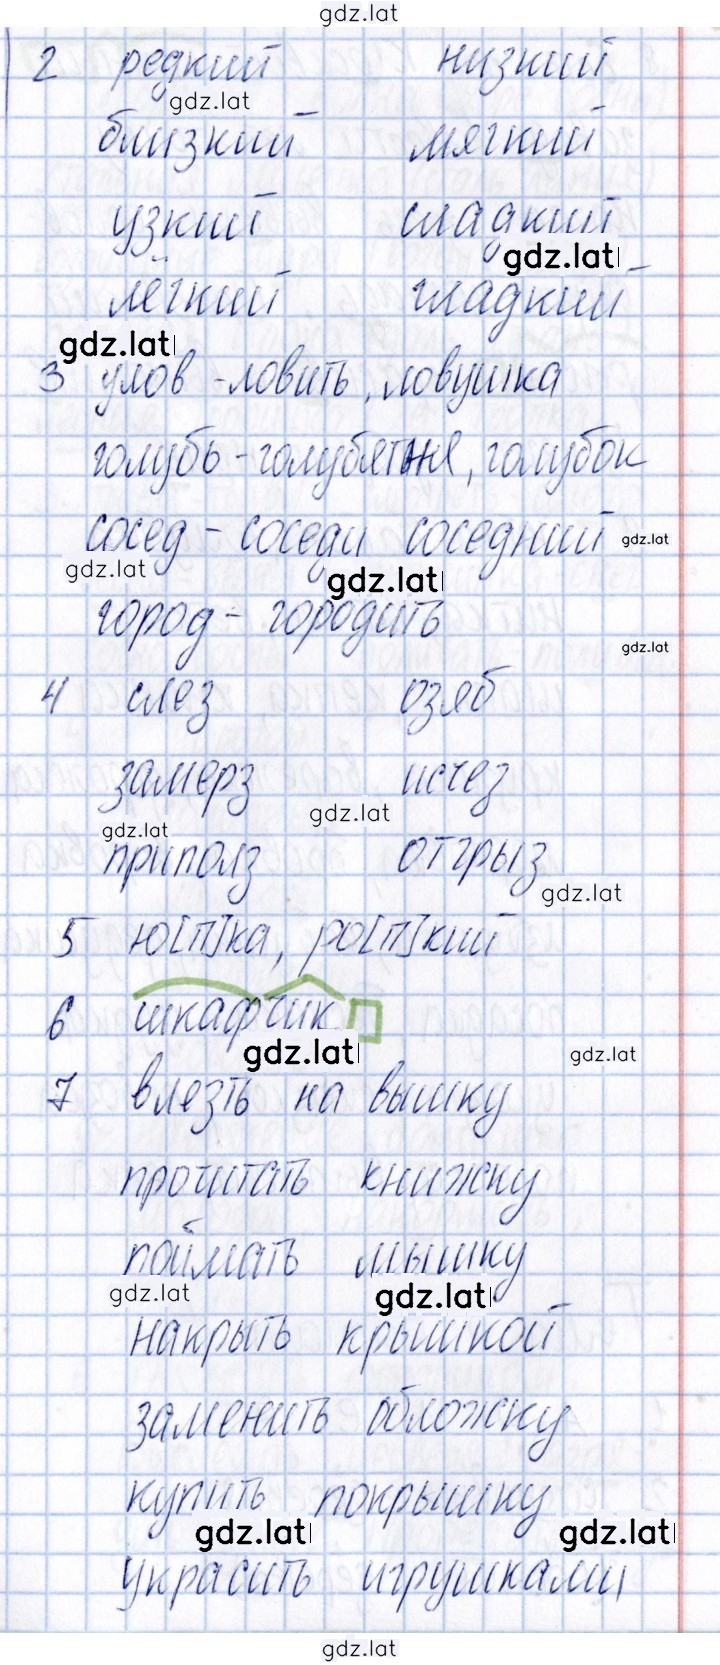 gdz.lat
2 редкий низкий
gdz.lat
близкий мягкий
узкий сладкий
gdz.lat
лёгкий гладкий
gdz.lat
3 улов - ловить, ловушка
голубь - голубятня, голубок
сосед - соседи соседний gdz.lat
gdz.lat gdz.lat
город - городить
gdz.lat
4 слез озяб
замерз исчез
gdz.lat
gdz.lat
приполз отгрыз
gdz.lat
5 ю[п]ка, ро[п]кий
6 шкафчик
gdz.lat gdz.lat
7 влезть на вышку
прочитать книжку
поймать мышку
gdz.lat gdz.lat
накрыть крышкой
заменить обложку
купить покрышку
gdz.lat gdz.lat
украсить игрушками
gdz.lat